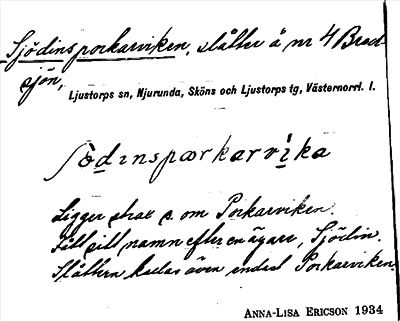 Sjödins porkarviken, slåtter å nr 4 Bred-
sjön,
Ljustorps sn, Njurunda, Sköns och Ljustorps tg, Västernorrl. l.
ʃödinspɶrkarvika
Ligger strax s. om Porkarviken.
Fått sitt namn efter en ägare, Sjödin.
Slåttern kallas även endast Porkarviken.
ANNA-LISA ERICSON 1934